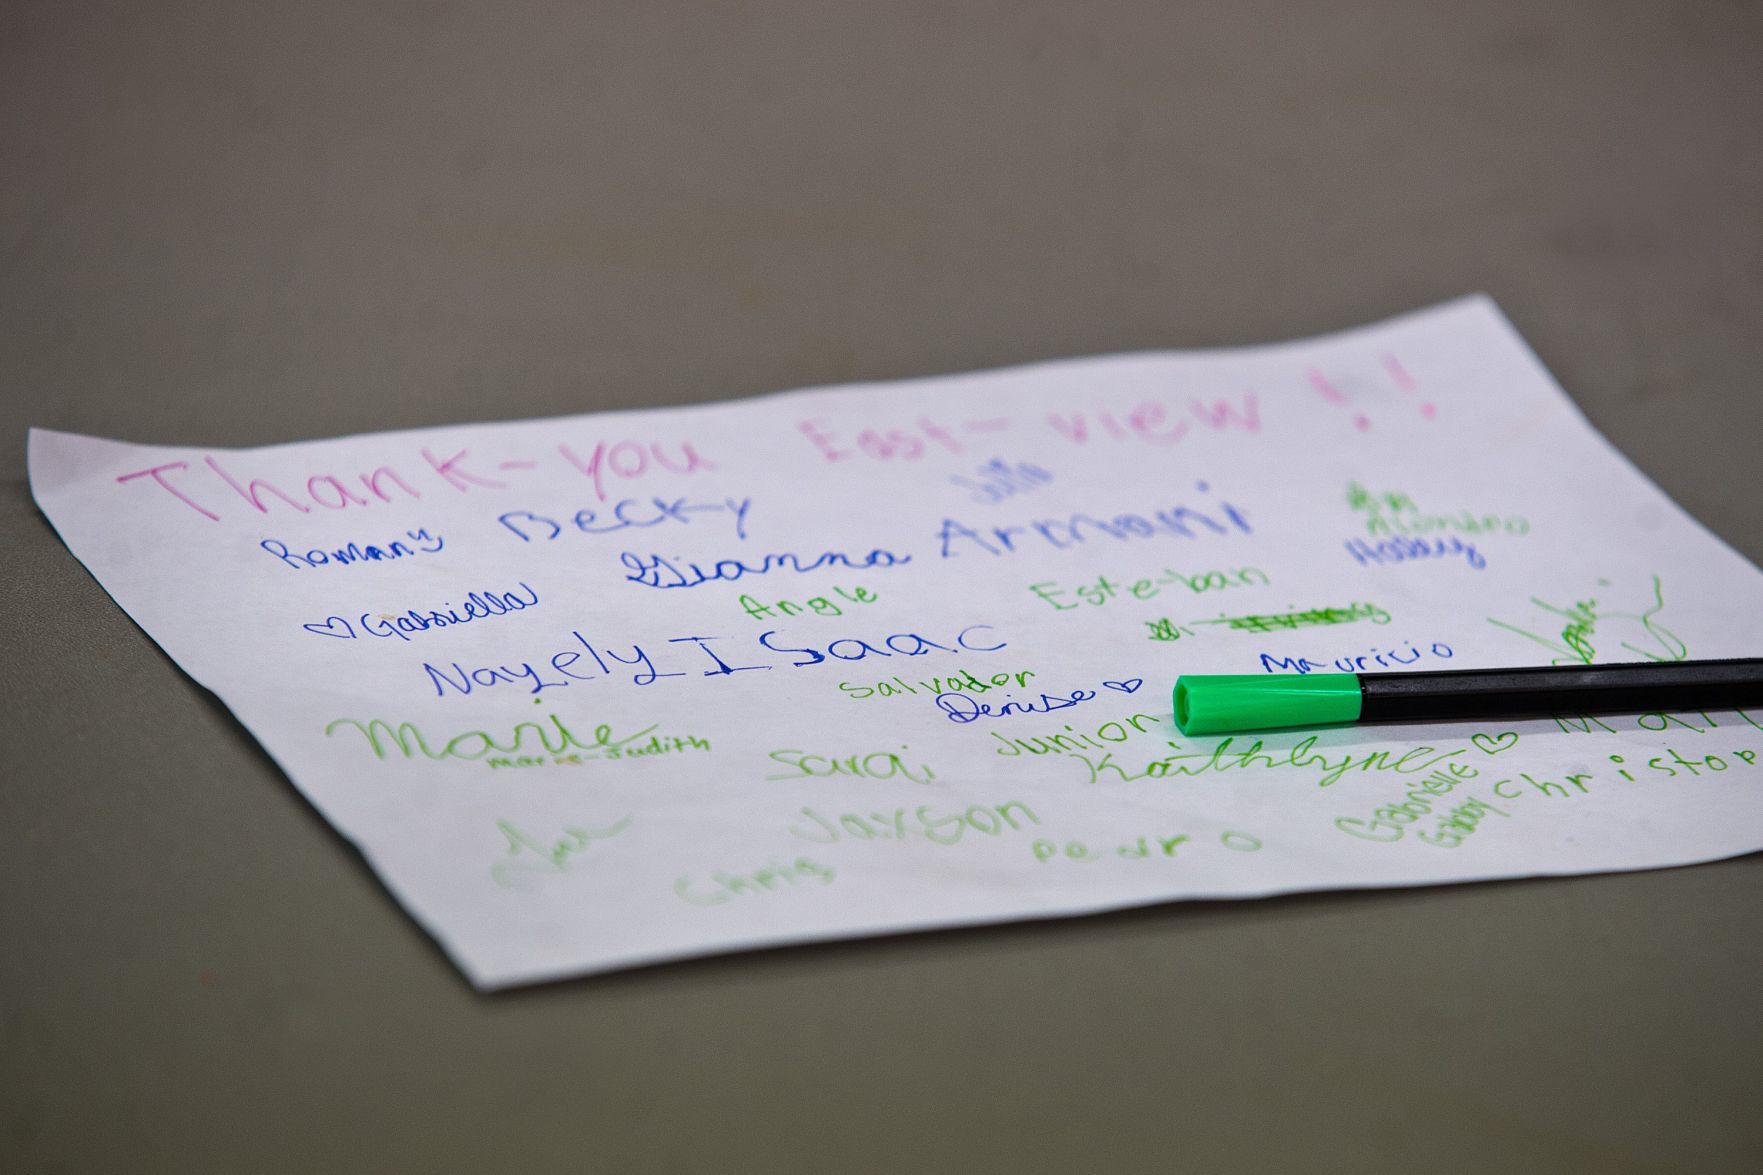 Thank-you East-view!!
Becky Armani
Romany Gianna
♡ Gabriella Angle Este-ban
Nayely ISaac Mauricio
Salvador
Denise ♡
Marie Junior
Marie-Judith Sarai Kaithlyne ♡
Jayson Gabrielle Christop
Gabby
Chris Pedro